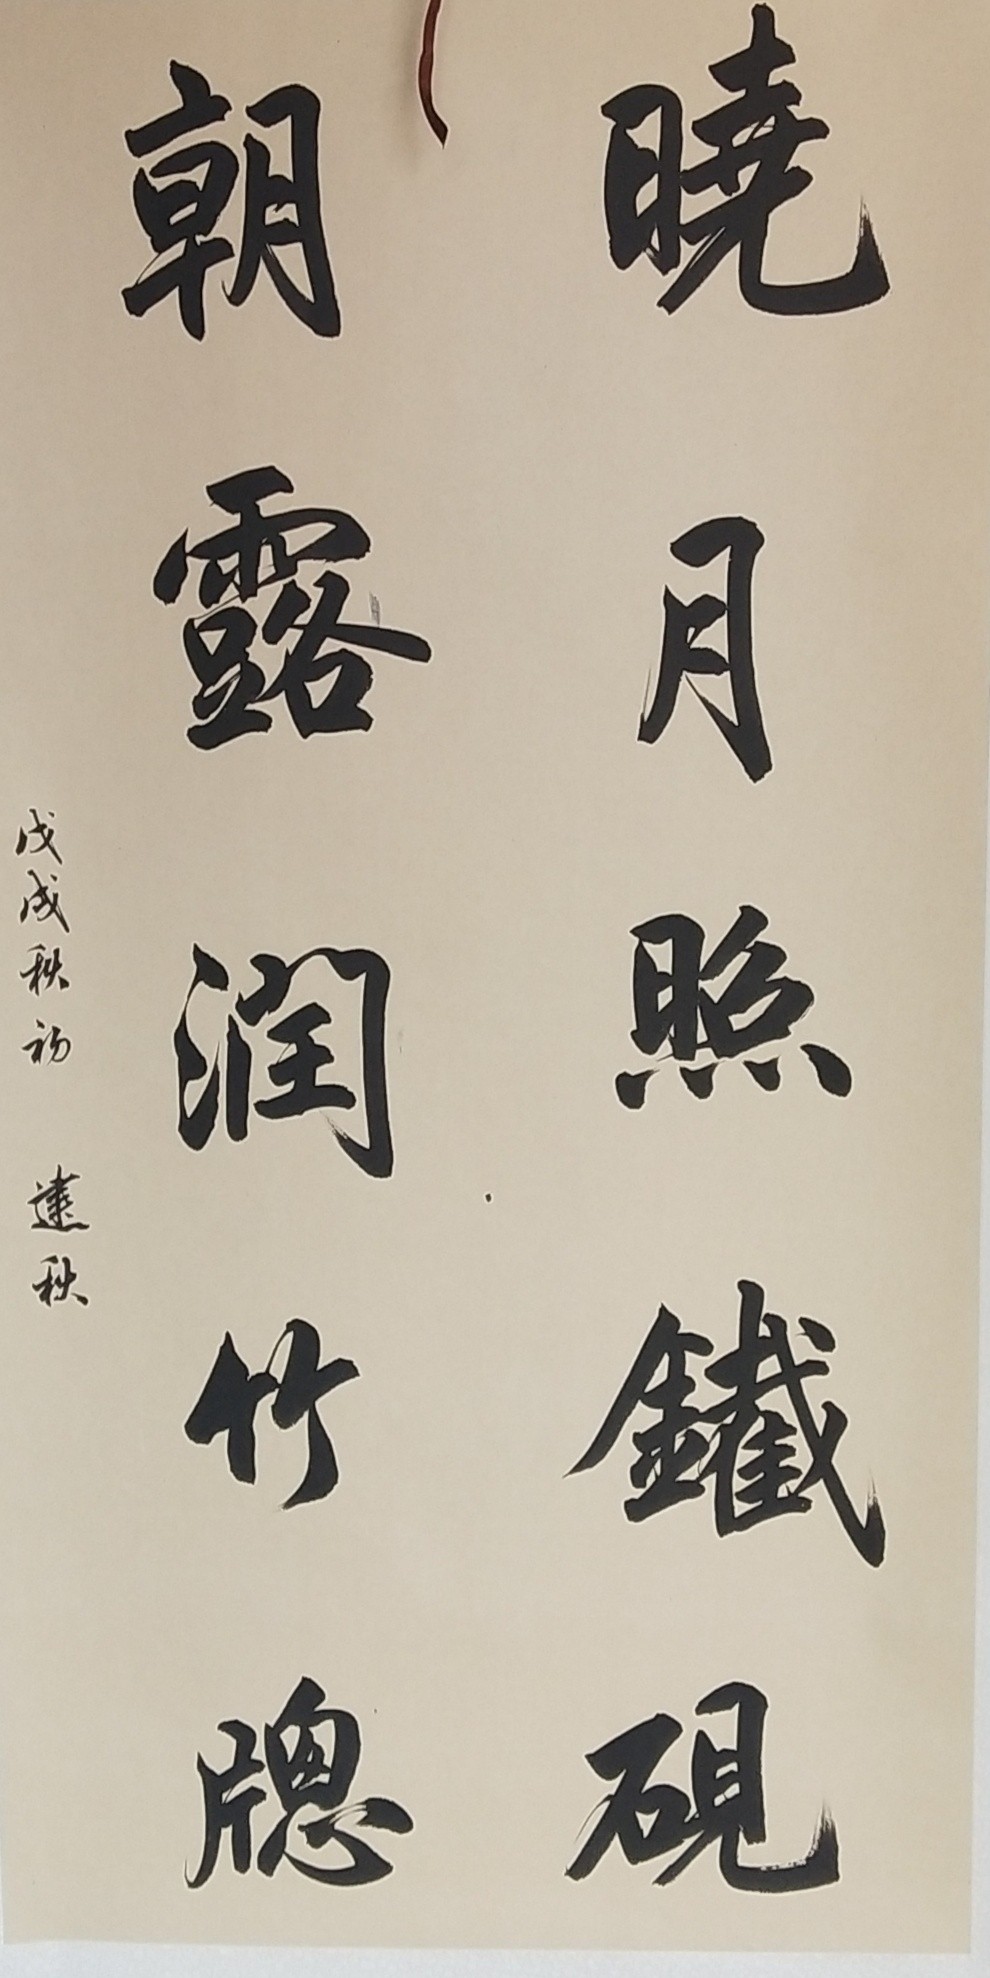 曉月照鐵硯
朝露润竹牕
戊戌秋初 建秋